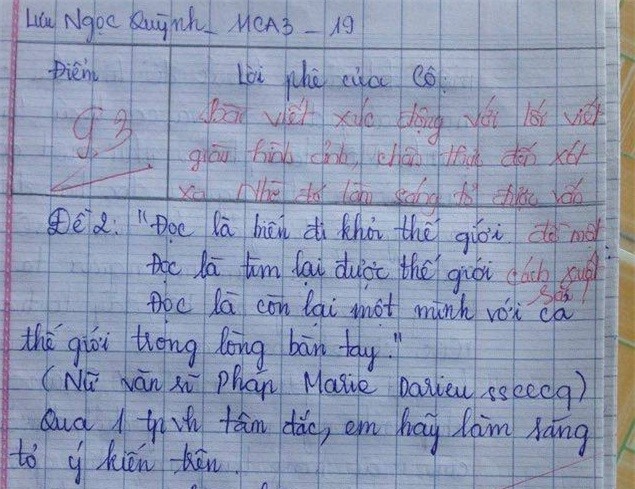 Lưu Ngọc Quỳnh_ 11CA3 - 19
Điểm
Lời phê của Cô:
9,3
Bài viết xúc động với lối viết
giàu hình ảnh, chân thực đến xót
xa. Nhờ đó làm sáng tỏ được vấn
Đề 2: "Đọc là biến đi khỏi thế giới
đề một
Đọc là tìm lại được thế giới
cách xuất
Đọc là còn lại một mình với cả
sắc
thế giới trong lòng bàn tay."
(Nữ văn sĩ Pháp Marie Darieu ssecq)
Qua 1 tp vh tâm đắc, em hãy làm sáng
tỏ ý kiến trên.